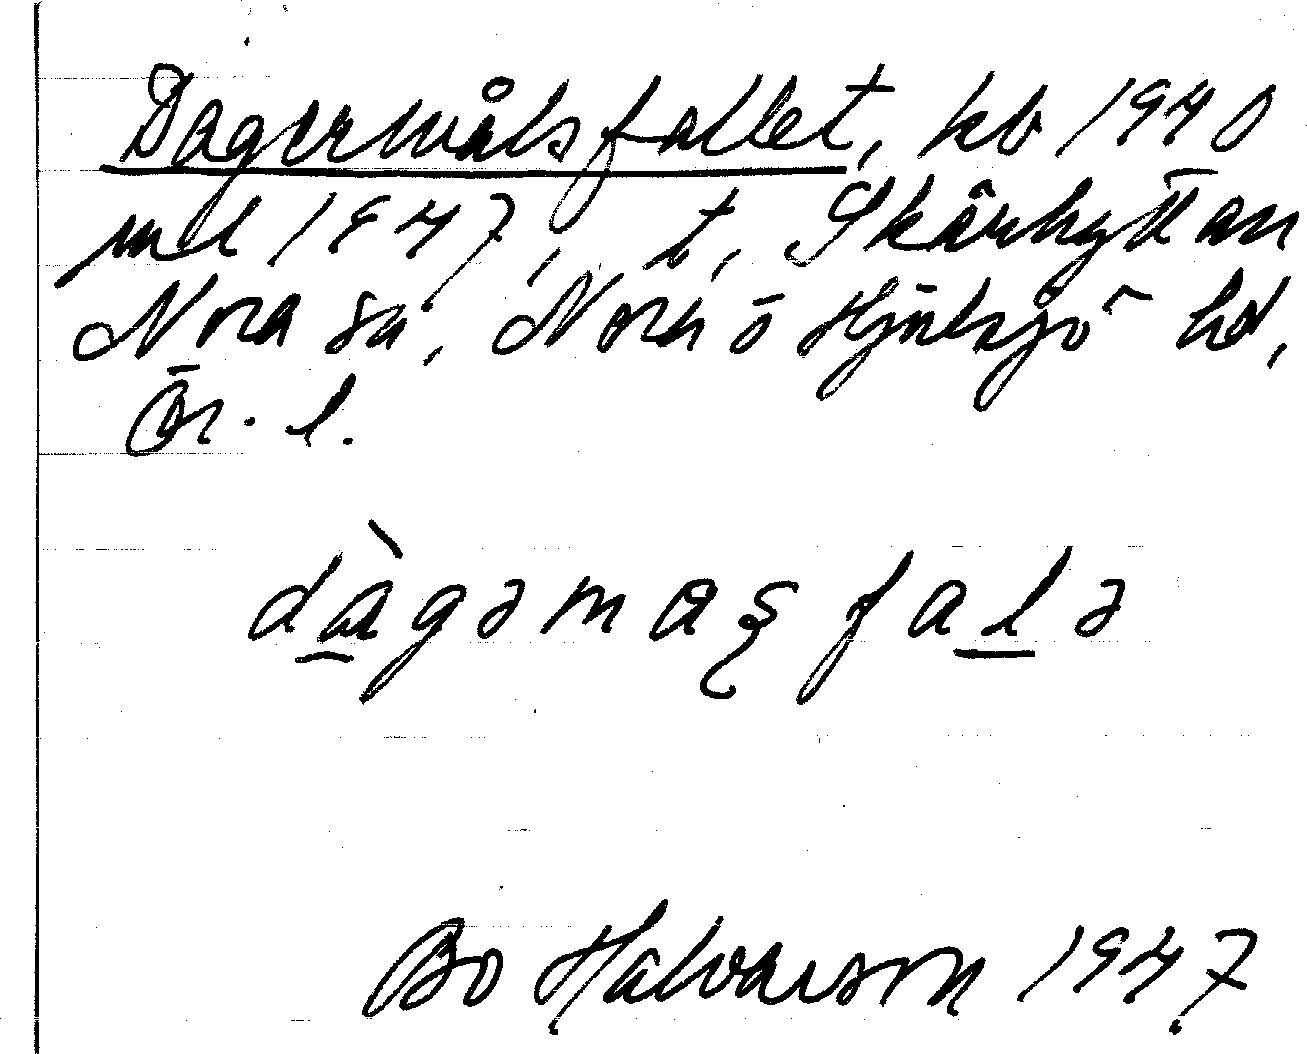 Dagermålsfallet, kb 1940
md 1947, t. Skärhyttan
Nora sn, Nora o Hjulsjö hd,
Ör. l.
dàgəmaʂfalə
Bo Halvarson 1947